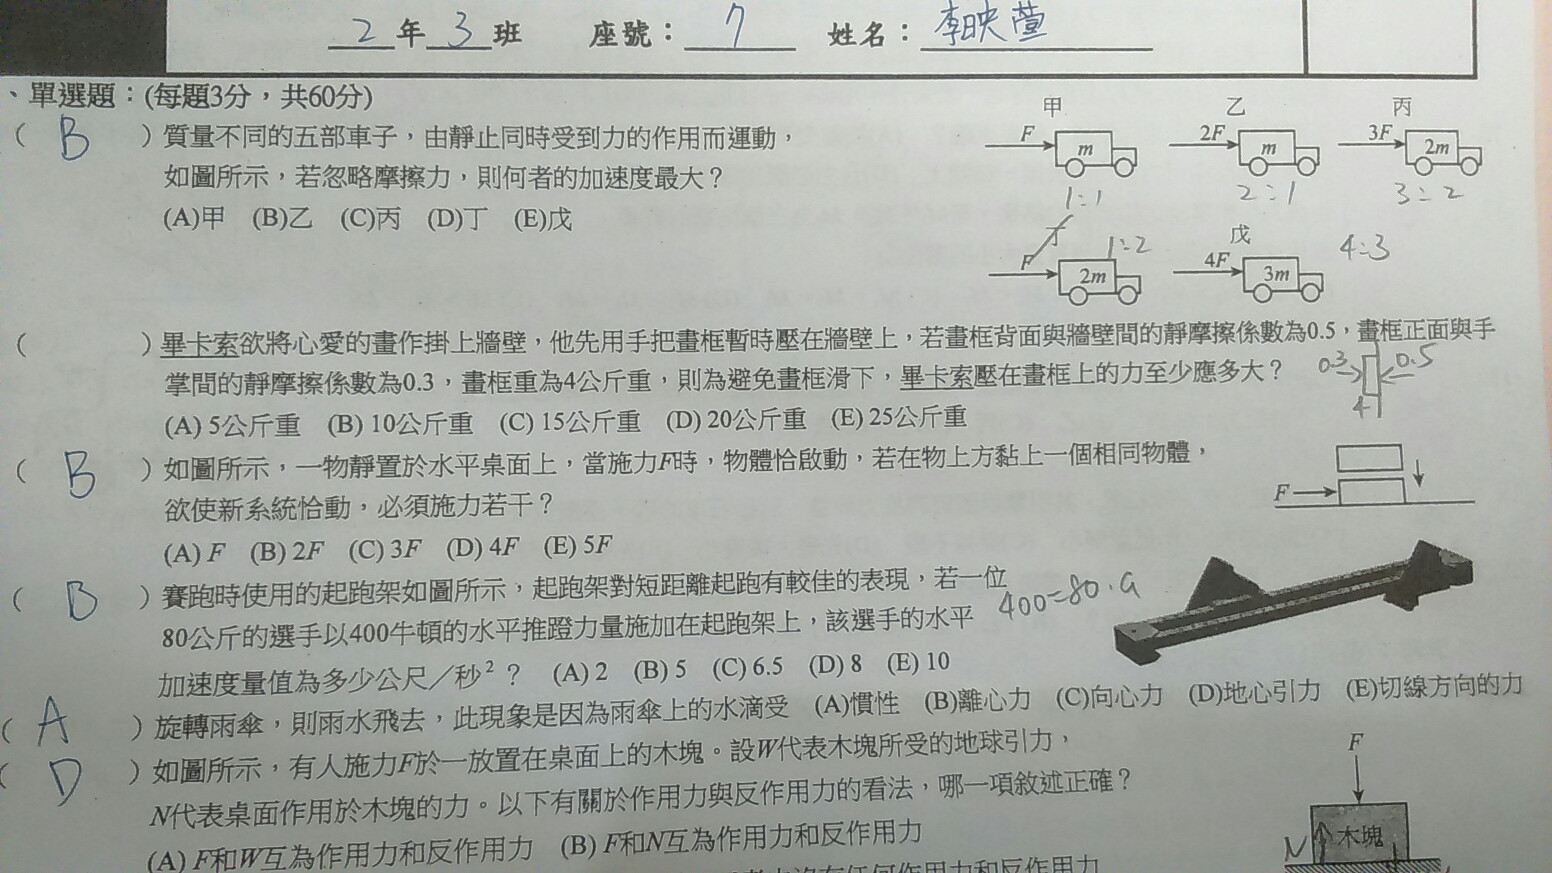 2年3班 座號：7 姓名：李映萱
、單選題：(每題3分，共60分)
( B )質量不同的五部車子，由靜止同時受到力的作用而運動，
如圖所示，若忽略摩擦力，則何者的加速度最大？
(A)甲 (B)乙 (C)丙 (D)丁 (E)戊
甲 乙 丙
F m 2F m 3F 2m
1:1 2:1 3:2
丁 1:2 戊 4:3
F 2m 4F 3m
( )畢卡索欲將心愛的畫作掛上牆壁，他先用手把畫框暫時壓在牆壁上，若畫框背面與牆壁間的靜摩擦係數為0.5，畫框正面與手
掌間的靜摩擦係數為0.3，畫框重為4公斤重，則為避免畫框滑下，畢卡索壓在畫框上的力至少應多大？
0.3 0.5
4
(A) 5公斤重 (B) 10公斤重 (C) 15公斤重 (D) 20公斤重 (E) 25公斤重
( B )如圖所示，一物靜置於水平桌面上，當施力F時，物體恰啟動，若在物上方黏上一個相同物體，
欲使新系統恰動，必須施力若干？
F
(A) F (B) 2F (C) 3F (D) 4F (E) 5F
( B )賽跑時使用的起跑架如圖所示，起跑架對短距離起跑有較佳的表現，若一位
80公斤的選手以400牛頓的水平推蹬力量施加在起跑架上，該選手的水平
400=80·a
加速度量值為多少公尺／秒²？ (A) 2 (B) 5 (C) 6.5 (D) 8 (E) 10
( A )旋轉雨傘，則雨水飛去，此現象是因為雨傘上的水滴受 (A)慣性 (B)離心力 (C)向心力 (D)地心引力 (E)切線方向的力
( D )如圖所示，有人施力F於一放置在桌面上的木塊。設W代表木塊所受的地球引力，
N代表桌面作用於木塊的力。以下有關於作用力與反作用力的看法，哪一項敘述正確？
F
木塊
N
(A) F和W互為作用力和反作用力 (B) F和N互為作用力和反作用力
沒有任何作用力和反作用力